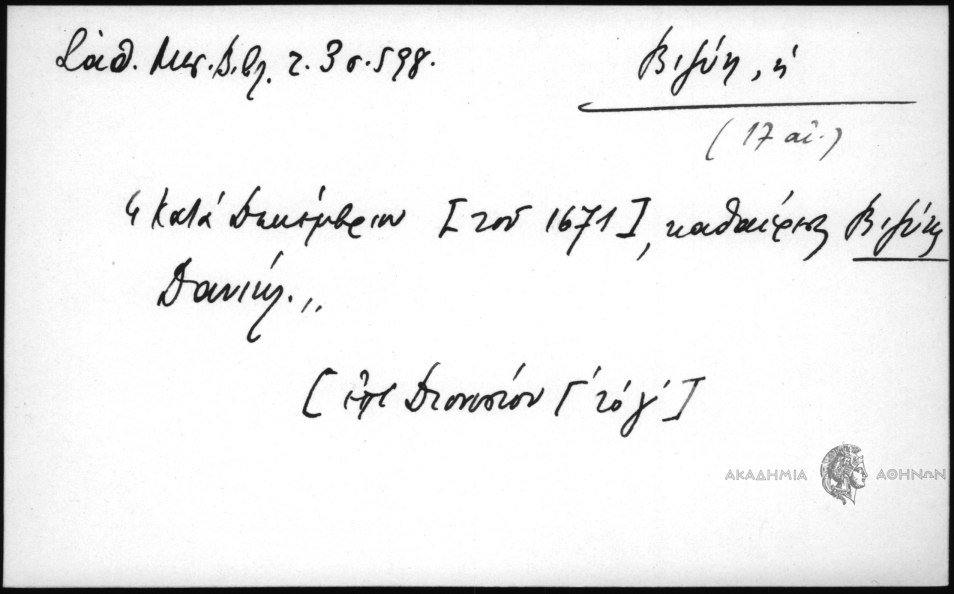 Σάθ. Μεσ. Βιβλ. τ. 3 σ. 598.
Βιζύη, ἡ
(17 αἰ.)
"Κατά Δεκέμβριον [τοῦ 1671], καθαίρεσις Βιζύης
Δανιήλ."
[ἐπί Διονυσίου Γ' τό γ']
ΑΚΑΔΗΜΙΑ ΑΘΗΝΩΝ